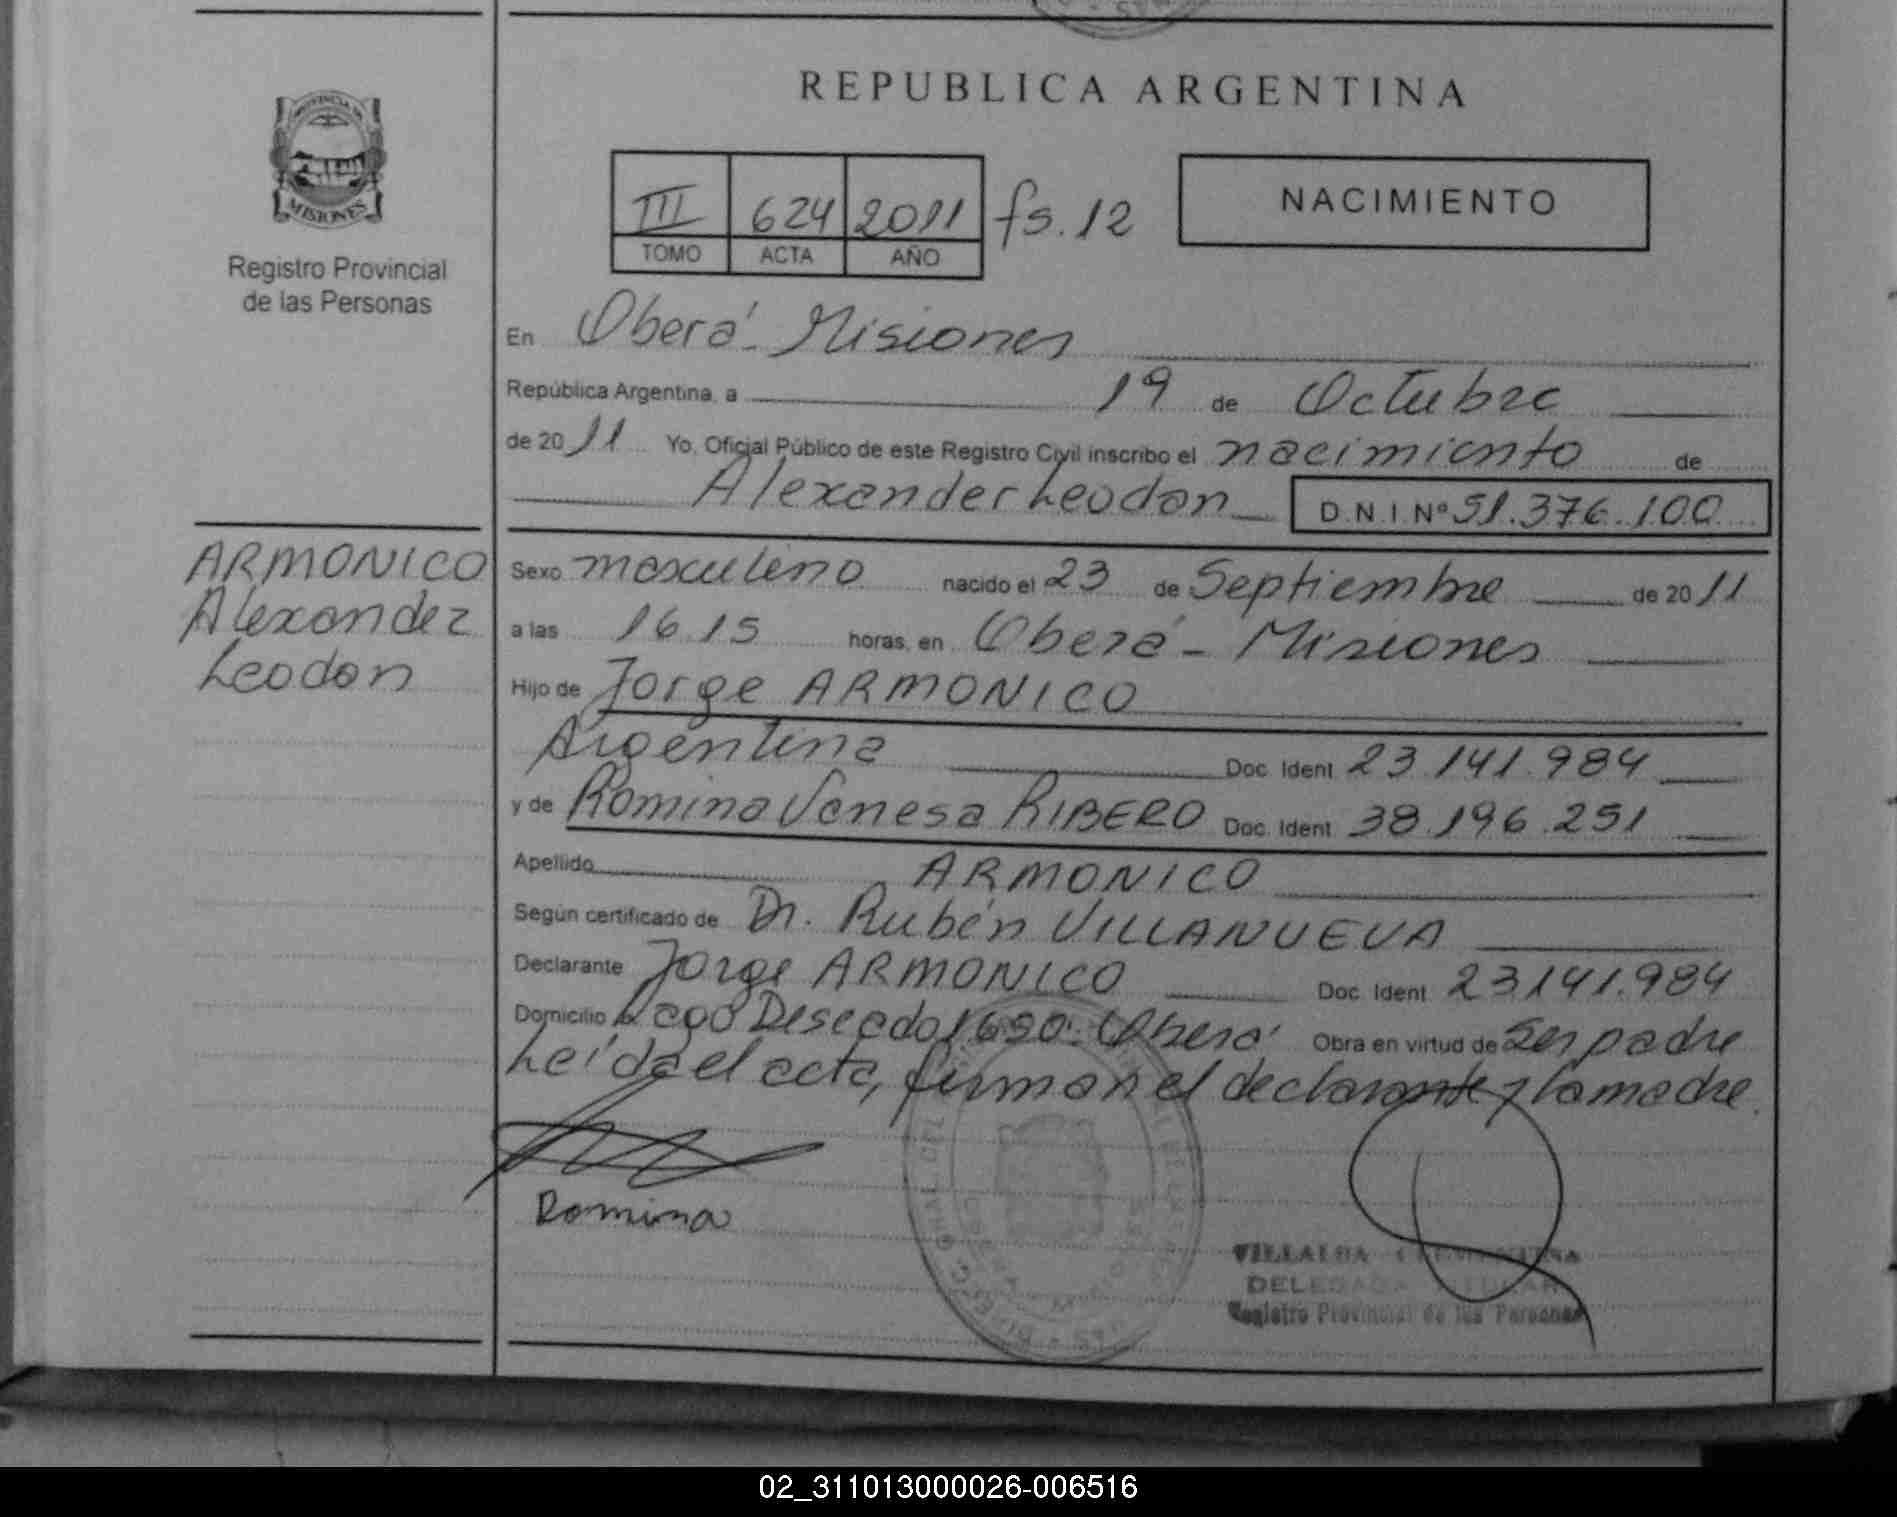 REPUBLICA ARGENTINA
PROVINCIA DE
MISIONES
Registro Provincial
de las Personas
III 624 2011 fs. 12
TOMO ACTA AÑO
NACIMIENTO
En Oberá - Misiones
República Argentina, a 19 de Octubre
de 2011 Yo, Oficial Público de este Registro Civil inscribo el nacimiento de
Alexander Leodan D.N.I. Nº 51.376.100
ARMONICO
Alexander
Leodan
Sexo masculino nacido el 23 de Septiembre de 2011
a las 16.15 horas, en Oberá - Misiones
Hijo de Jorge ARMONICO
Argentina Doc. Ident 23.141.984
y de Romina Vanesa RIBERO Doc. Ident 38.196.251
Apellido ARMONICO
Según certificado de Dr. Rubén VILLANUEVA
Declarante Jorge ARMONICO Doc. Ident 23.141.984
Domicilio Lago Deseado Oberá Obra en virtud de Ser padre
Leída el acta, firman el declarante y la madre.
Romina
VILLALBA
DELEGADA TITULAR
Registro Provincial de las Personas
02_311013000026-006516